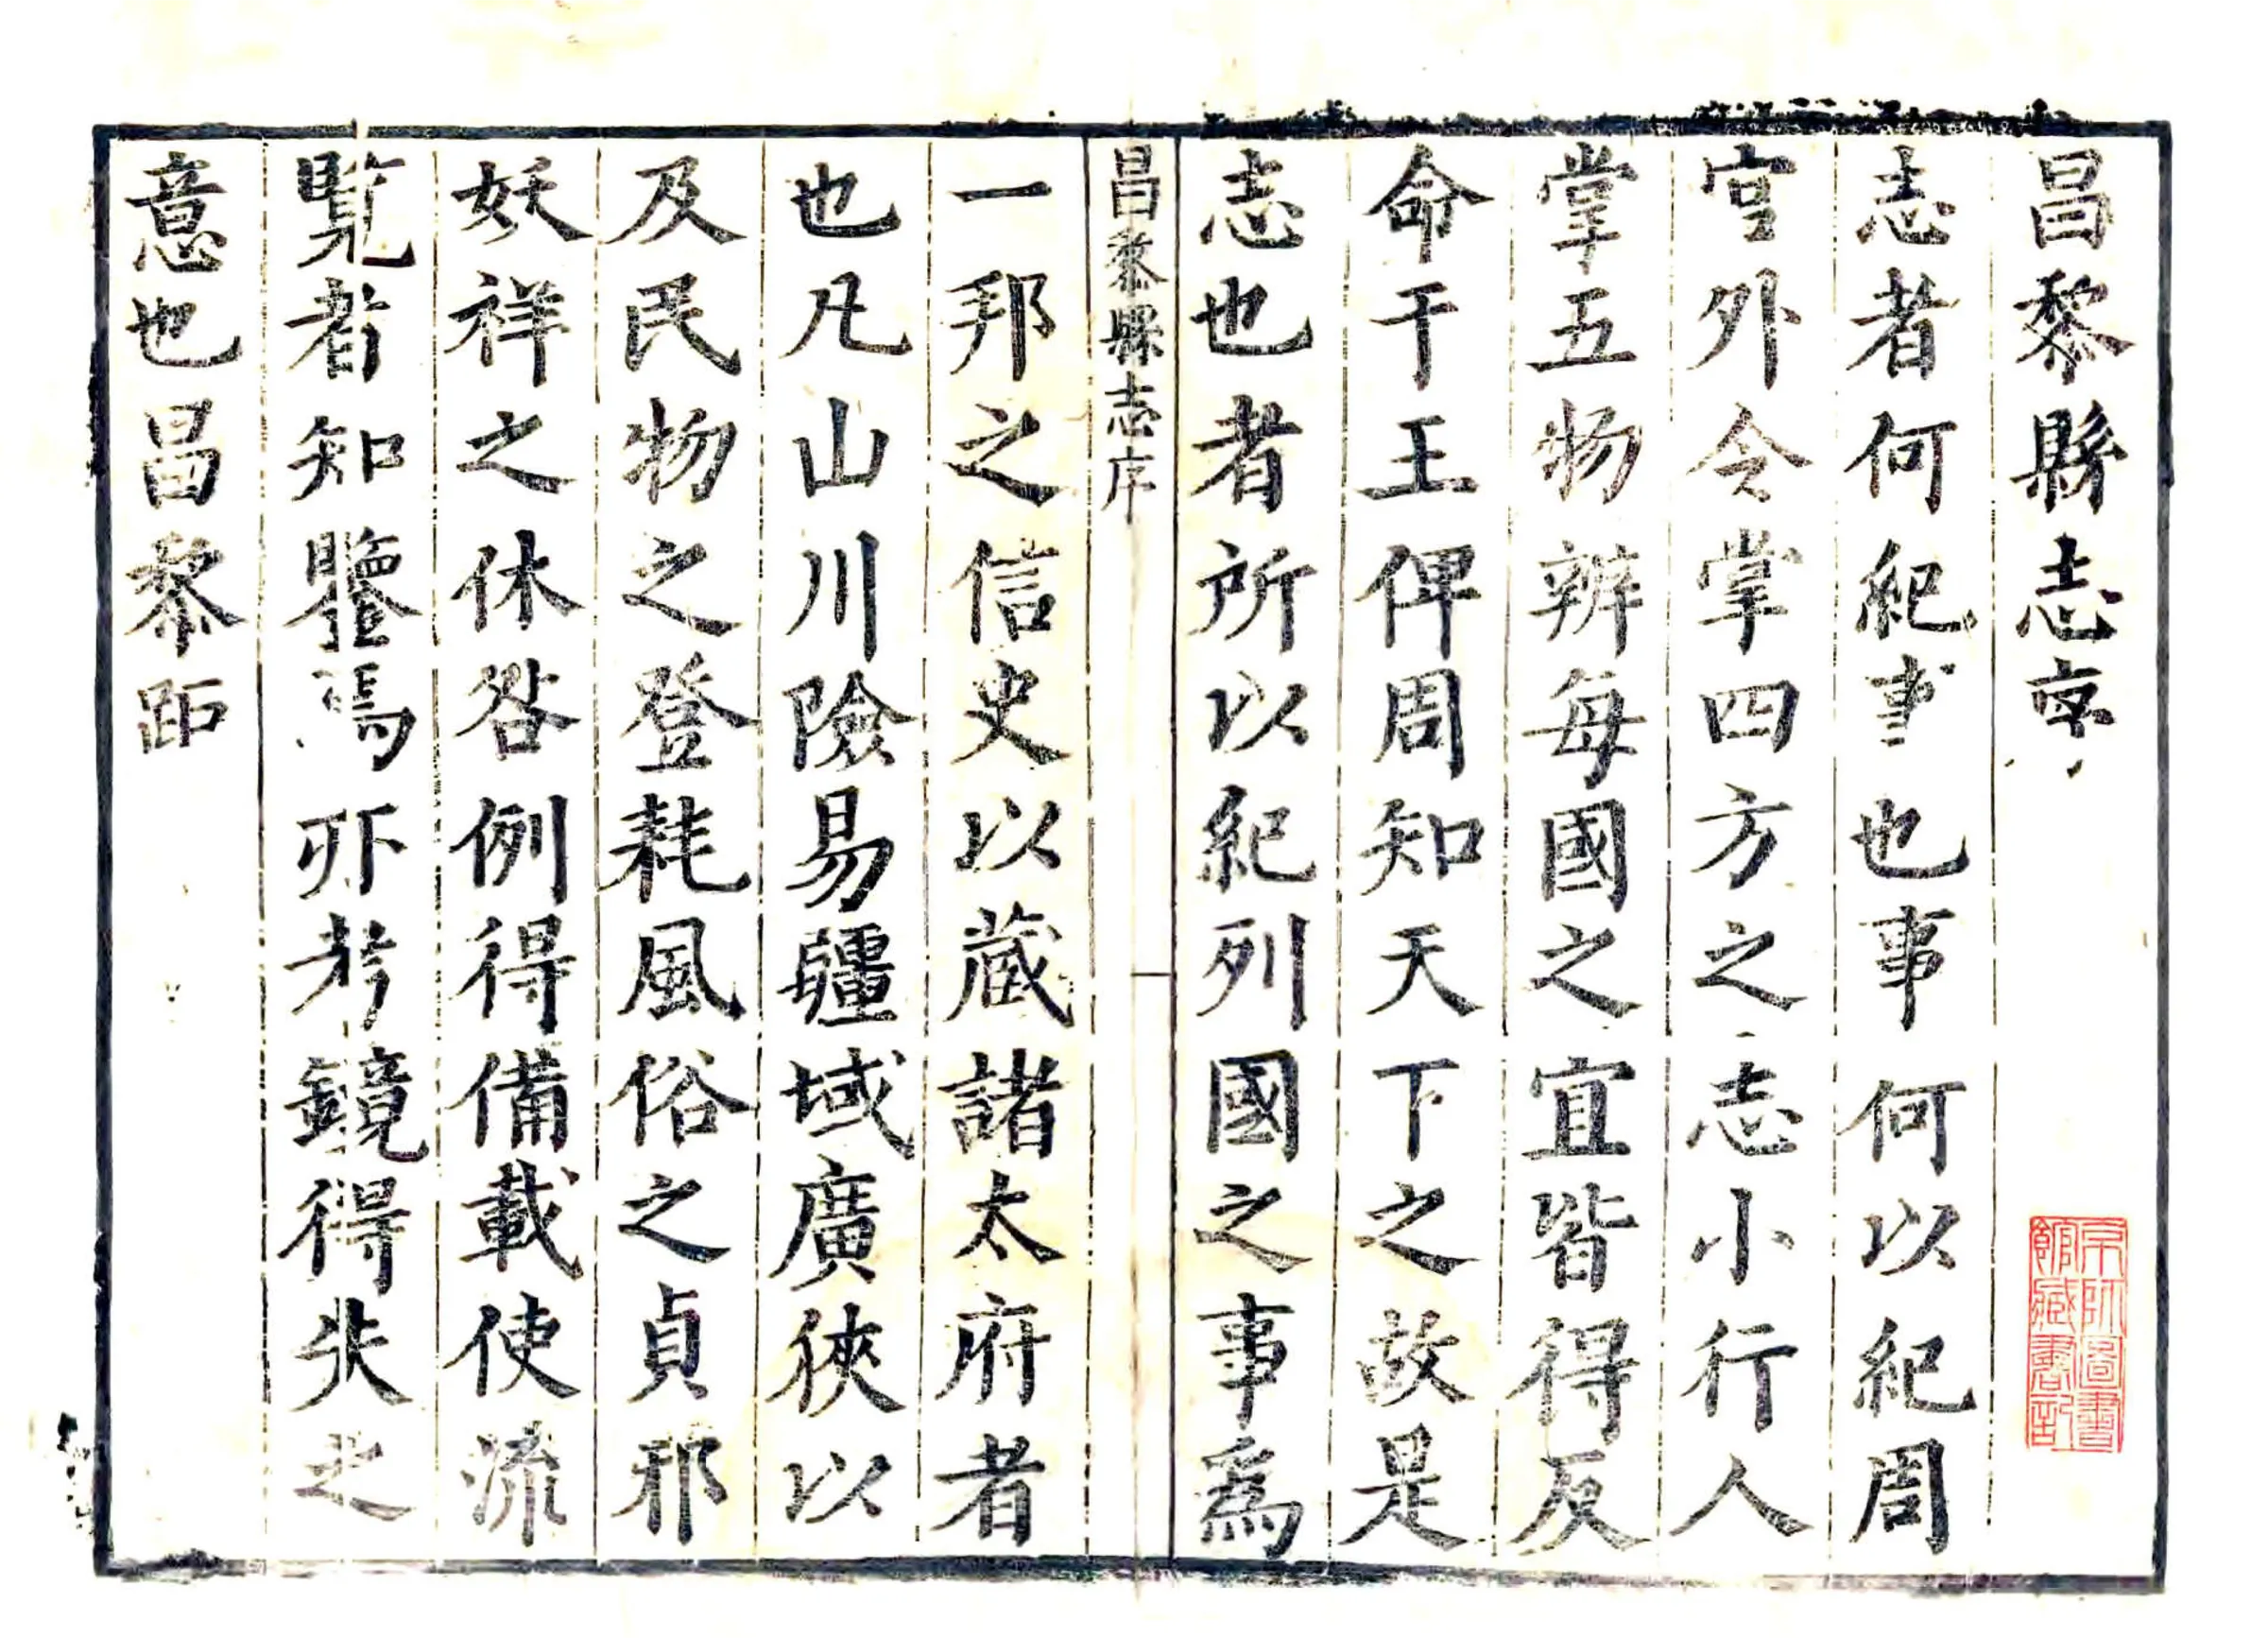 昌黎縣志序
志者何紀事也事何以紀周
官外令掌四方之志小行人
掌五物辨每國之宜皆得反
命于王俾周知天下之故是
志也者所以紀列國之事爲
昌黎縣志序
一邦之信史以藏諸太府者
也凡山川險易疆域廣狹以
及民物之登耗風俗之貞邪
妖祥之休咎例得備載使流
覽者知鑒焉所考鏡得失之
意也昌黎距
京師圖書
館藏書記